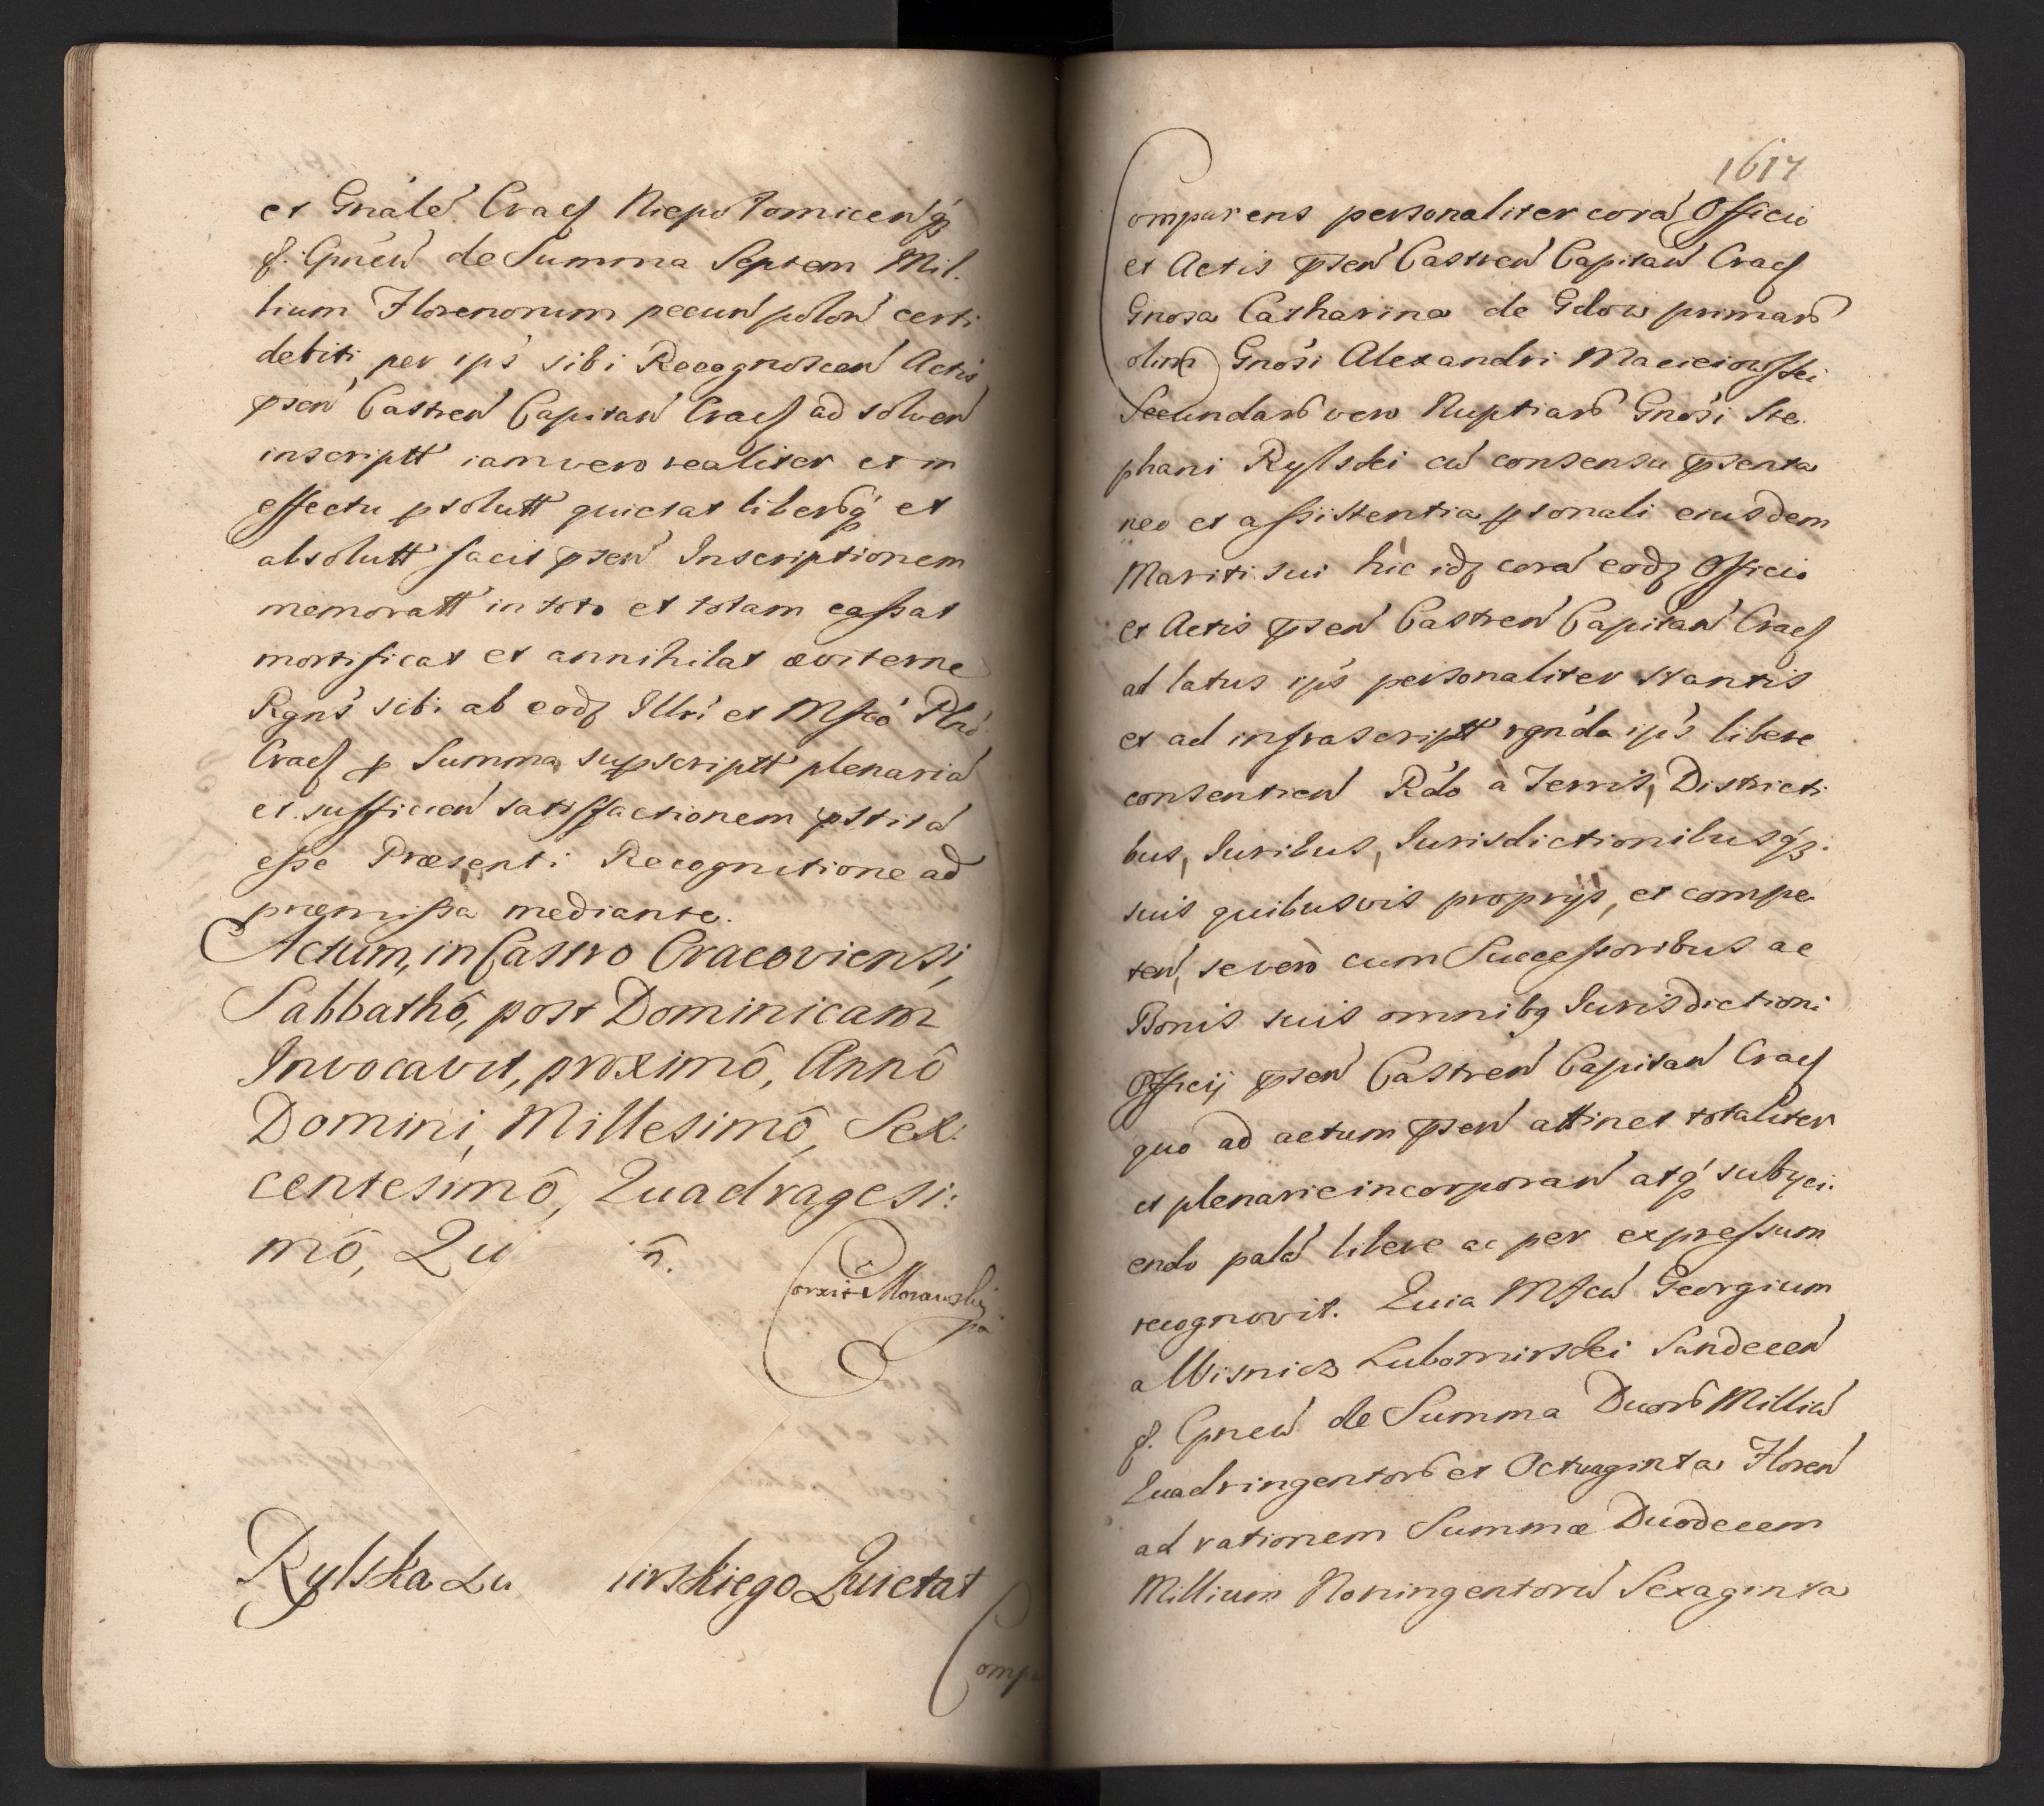 et Gnale Cracỻ Niepolomicenq́
ꝑ. Gnen de Summa Septem Mil-
lium Florenorum pecun polon certi
debiti per ips sibi Recognoscen Actis
pnsen Castren Capitan Cracỻ ad solven
inscriptt iam vero realiter et in
effectu psolutt quietat liberq́ et
absolutt facit psen Inscriptionem
memoratt in toto et totam cassat
mortificat et annihilat æviterne
Rgns sibi ab eodz Illri et Mfco Plno
Cracỻ ꝑ Summa supscriptt plenariã
et sufficien satisfactionem pstitã
esse Præsenti Recognitione ad
præmissa mediante.
Actum, in Castro Cracoviensi,
Sabbathô, post Dominicam
Invocavit, proximô, Annô
Domini, Millesimô, Sex:
centesimô, Quadragesi:
mô, Qu ô.
Corxit Morawskij
Rylska Lu irskiego Quietat
Comp
1617
Comparens personaliter corã Officio
et Actis psen Castren Capitan Cracỻ
Gnosa Catharina de Gdow primarũ
olim Gnosi Alexandri Macieiowskei
Secundarũ vero Nuptiarũ Gnosi Ste-
phani Rylskei cũ consensu psenta
neo et assistentia psonali eiusdem
Mariti sui hic idz corã eodz Officio
et Actis psen Castren Capitan Cracỻ
ad latus ips personaliter stantis
et ad infrascriptt rgnda ips libere
consentien Rdo à Terris, Districti
bus, Iuribus, Iurisdictionibusq́z
suis quibusvis proprijs, et compe
ten, se verò cum Successoribus ac
Bonis suis omnibq Iurisdictioni
Officij psen Castren Capitan Cracỻ
quo ad actum psen attinet totaliter
et plenarie incorporan atq́ subyci-
endo palã libere ac per expressum
recognovit. Quia Mfcũ Georgium
a Wisnicz Lubomirskei Sandecen
ꝑ. Gnen de Summa Duorũ Milliũ
Quadringentorũ et Octuaginta Floren
ad rationem Summæ Duodecem
Millium Noningentorũ Sexaginta